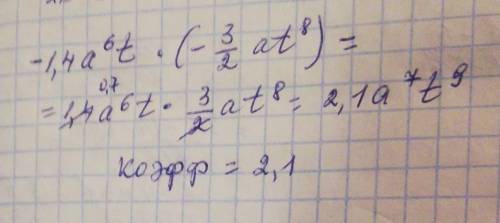 -1,4a⁶t · (-3/2 at⁸) =
= 1,4a⁶t · 3/2 at⁸ = 2,1a⁷t⁹
0,7
коэфф = 2,1